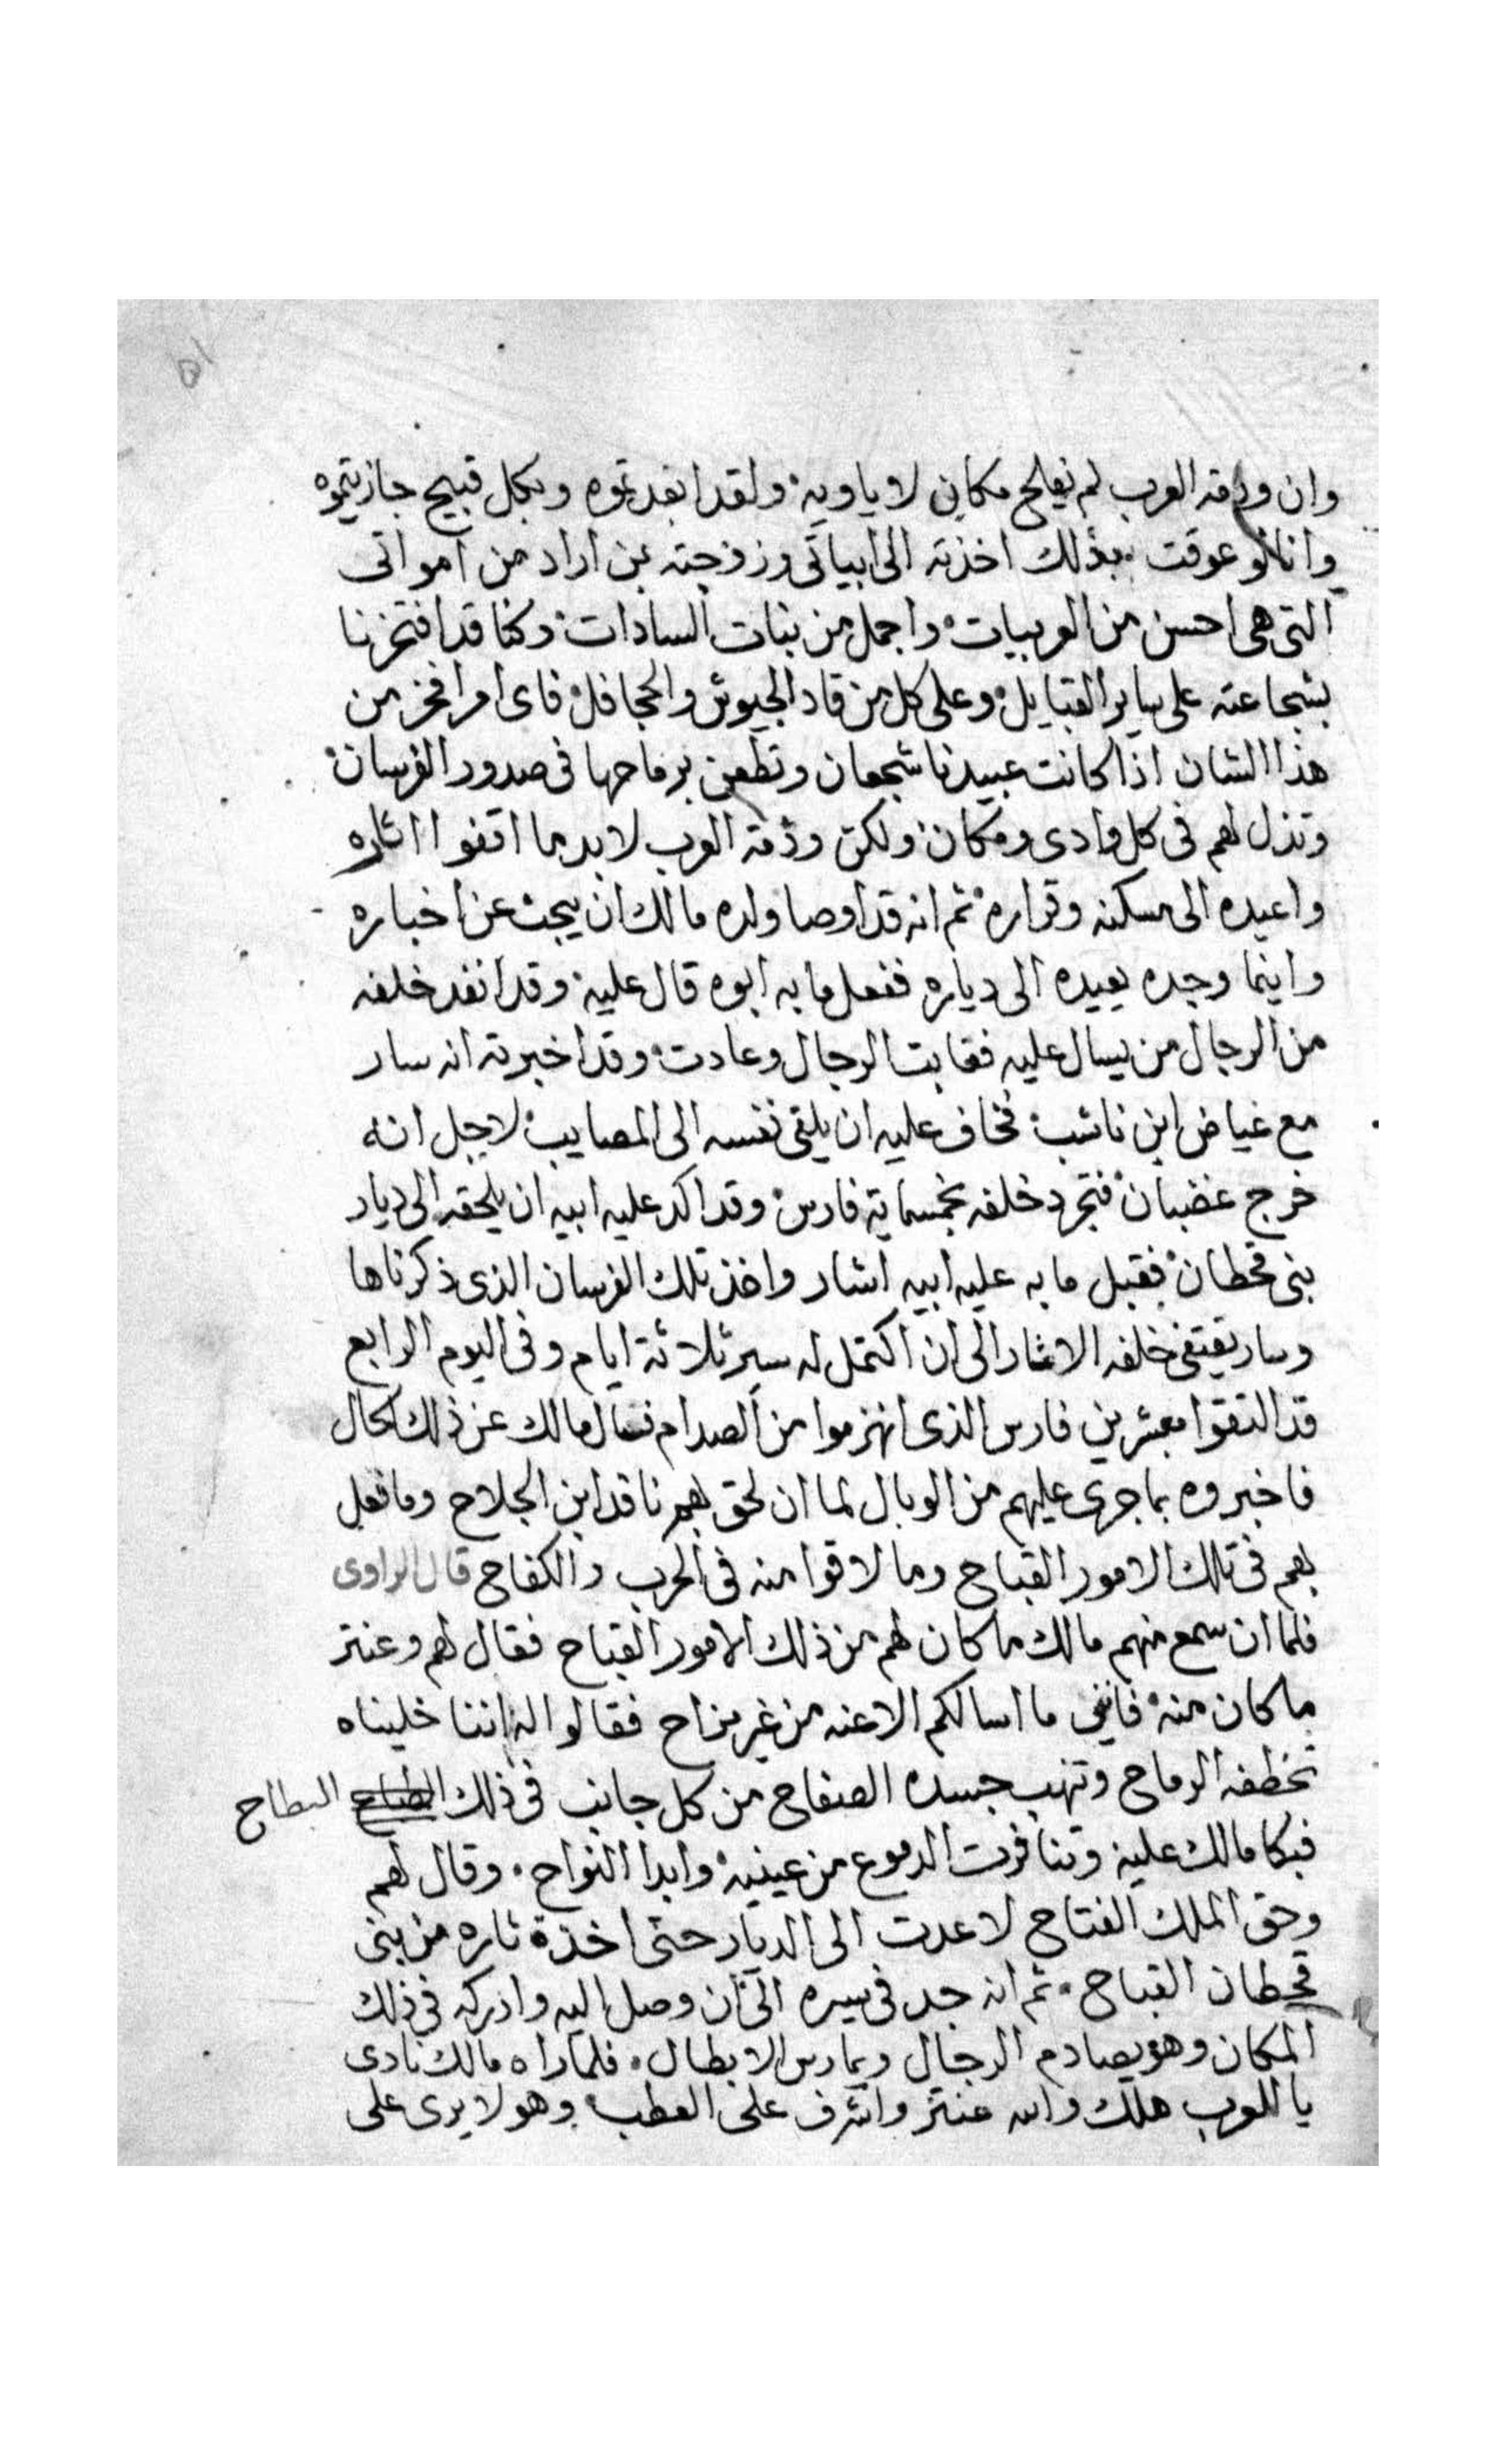 وان وذمة العرب لم نعلم مكان لا ياويه ولقد ابعدتموه وبكل قبيح جازيتموه
وانا لو عرفت بذلك اخذته الى ابياتي وزوجته بمن اراد من امواتى
التى هى احسن من العربيات واجمل من بنات السادات وكنا قد افتخرنا
بشجاعته على ساير القبايل وعلى كل من قاد الجيوش والجحافل فاى امر افخر من
هذا الشان اذا كانت عبيدنا شجعان وتطعن برماحها فى صدور الفرسان
وتذل لهم فى كل وادى ومكان ولكن وذمة العرب لابد ما اقفوا اثاره
واعيده الى مسكنه وقراره ثم انه قد اوصا ولده مالك ان يبحث عن اخباره
واينما وجده يعيده الى دياره ففعل ما به ابوه قال عليه وقد انفد خلفه
من الرجال من يسال عليه فغابت الرجال وعادت وقد اخبرته انه سار
مع غياض ابن ناشب فخاف عليه ان يلقى نفسه الى المصايب لاجل انه
خرج غضبان فتجرد خلفه بخمسماية فارس وقد اكد عليه ابيه ان يلحقه الى ديار
بنى قحطان فقبل ما به عليه ابيه اشار واخذ تلك الفرسان الذى ذكرناها
وسار يقتفى خلفه الاثار الى ان اكتمل له سير ثلاثة ايام وفى اليوم الرابع
قد التقوا بعشرين فارس الذى انهزموا من الصدام فسال مالك عن ذلك الحال
فاخبروه بما جرى عليهم من الوبال لما ان لحق بهم ناقد ابن الجلاح وما فعل
بهم فى تلك الامور القباح وما لاقوا منه فى الحرب والكفاح قال الراوى
فلما ان سمع منهم مالك ما كان لهم من ذلك الامور القباح فقال لهم وعنتر
ما كان منه فاننى ما اسالكم الا عنه من غير مزاح فقالوا له اننا خليناه
تخطفه الرماح وتنهب جسده الصفاح من كل جانب فى ذلك البطاح
فبكا مالك عليه وتنافرت الدموع من عينيه وابدا النواح وقال لهم
وحق الملك الفتاح لا عدت الى الديار حتى اخذة ثاره من بنى
قحطان القباح ثم انه جد فى سيره الى ان وصل اليه وادركه فى ذلك
المكان وهو يصادم الرجال ويمارس الابطال فلما راه مالك نادى
يا للعرب هلك والله عنتر واشرف على العطب وهو لا يرى على